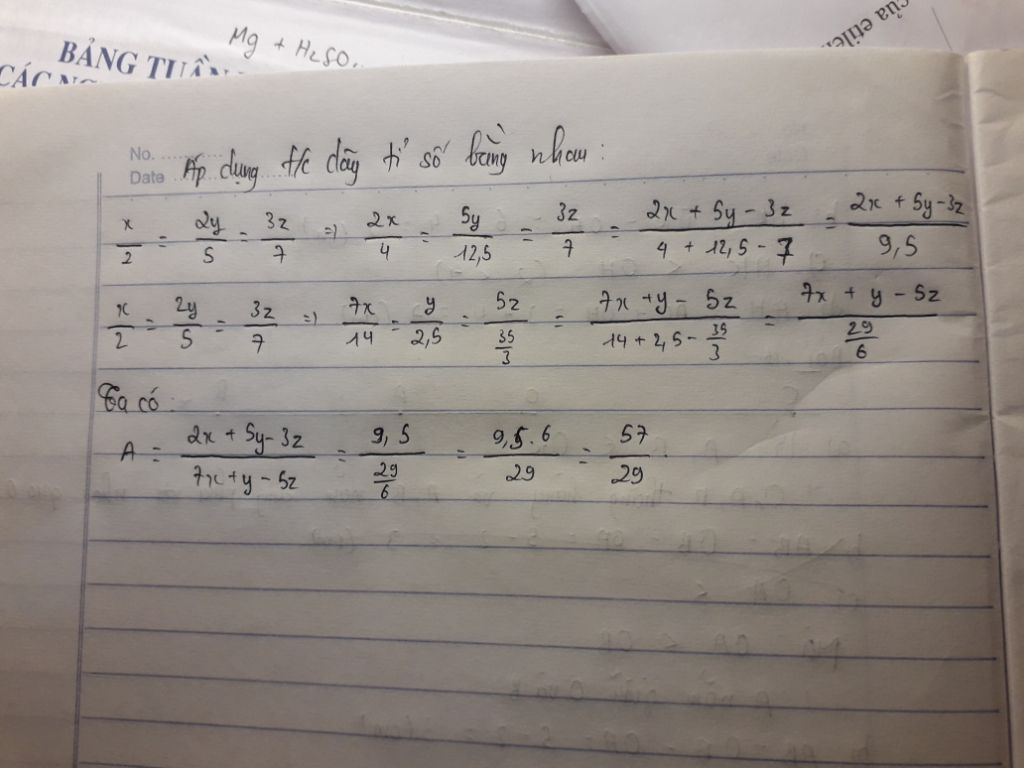 của etilen
Mg + H₂SO
BẢNG TUẦN
CÁC
No.
Date
Áp dụng t/c dãy tỉ số bằng nhau:
x/2 = 2y/5 = 3z/7 => 2x/4 = 5y/12,5 = 3z/7 = (2x + 5y - 3z)/(4 + 12,5 - 7) = (2x + 5y - 3z)/9,5
x/2 = 2y/5 = 3z/7 => 7x/14 = y/2,5 = 5z/(35/3) = (7x + y - 5z)/(14 + 2,5 - 35/3) = (7x + y - 5z)/(29/6)
Ta có:
A = (2x + 5y - 3z)/(7x + y - 5z) = 9,5/(29/6) = (9,5.6)/29 = 57/29